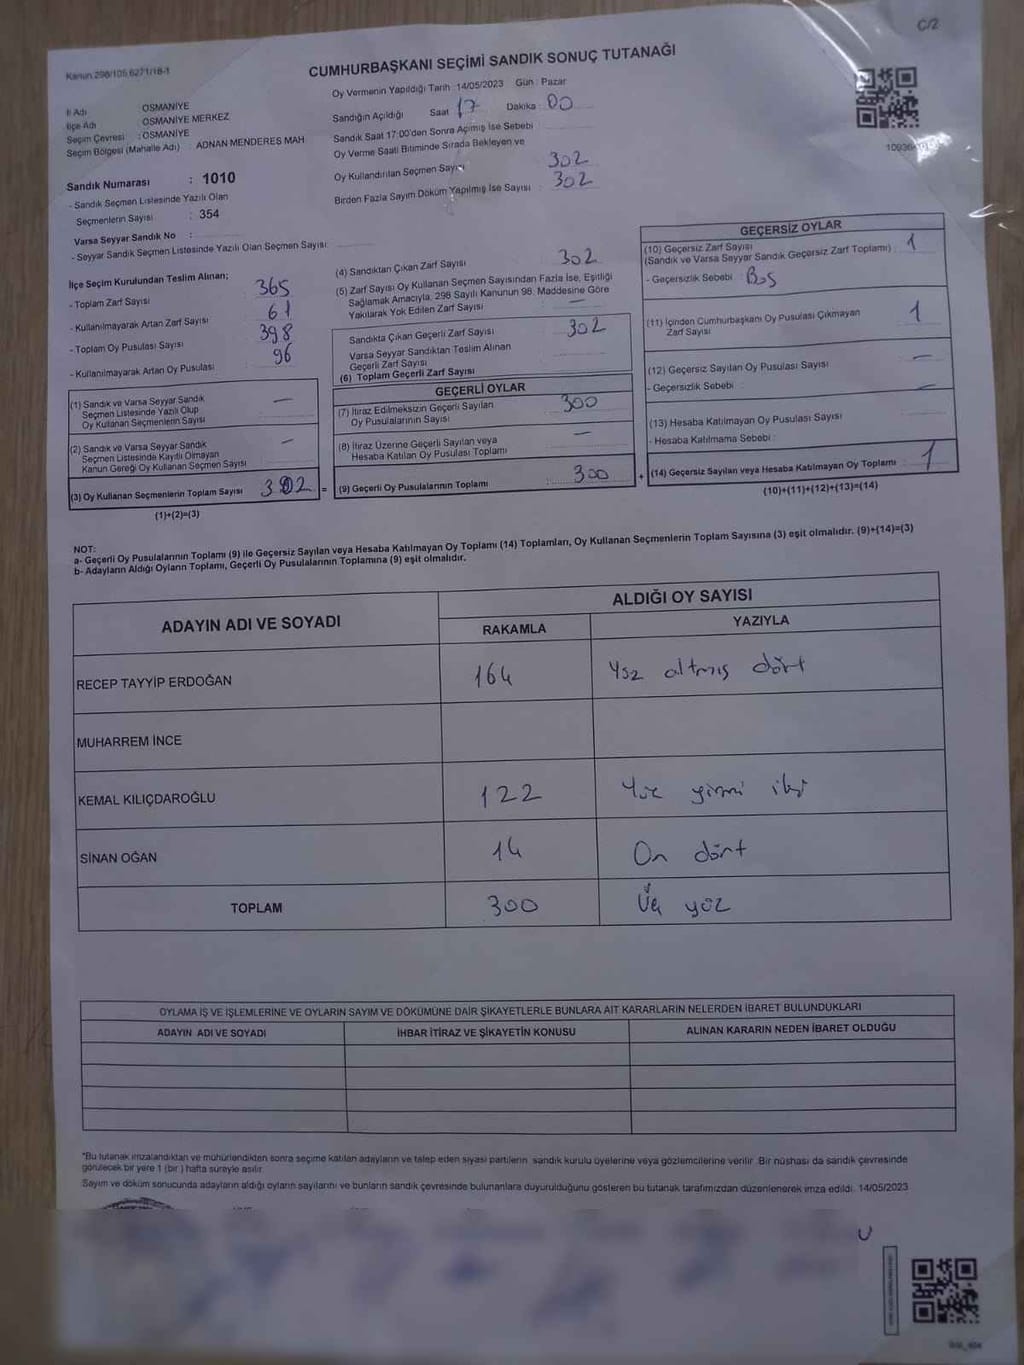 C/2
Kanun 298/105.6271/18-1
CUMHURBAŞKANI SEÇİMİ SANDIK SONUÇ TUTANAĞI
Oy Vermenin Yapıldığı Tarih : 14/05/2023 Gün : Pazar
İl Adı : OSMANİYE
İlçe Adı : OSMANİYE MERKEZ
Seçim Çevresi : OSMANİYE
Seçim Bölgesi (Mahalle Adı) : ADNAN MENDERES MAH
Sandığın Açıldığı Saat : 17 Dakika : 00
Sandık Saat 17:00'den Sonra Açılmış İse Sebebi :
Oy Verme Saati Bitiminde Sırada Bekleyen ve
Oy Kullandırılan Seçmen Sayısı : 302
Birden Fazla Sayım Döküm Yapılmış İse Sayısı : 302
Sandık Numarası : 1010
- Sandık Seçmen Listesinde Yazılı Olan
Seçmenlerin Sayısı : 354
Varsa Seyyar Sandık No :
- Seyyar Sandık Seçmen Listesinde Yazılı Olan Seçmen Sayısı:
İlçe Seçim Kurulundan Teslim Alınan;
- Toplam Zarf Sayısı : 365
- Kullanılmayarak Artan Zarf Sayısı : 61
- Toplam Oy Pusulası Sayısı : 398
- Kullanılmayarak Artan Oy Pusulası : 96
(1) Sandık ve Varsa Seyyar Sandık
Seçmen Listesinde Yazılı Olup
Oy Kullanan Seçmenlerin Sayısı : —
(2) Sandık ve Varsa Seyyar Sandık
Seçmen Listesinde Kayıtlı Olmayan
Kanun Gereği Oy Kullanan Seçmen Sayısı : —
(3) Oy Kullanan Seçmenlerin Toplam Sayısı 302 =
(1)+(2)=(3)
(4) Sandıktan Çıkan Zarf Sayısı : 302
(5) Zarf Sayısı Oy Kullanan Seçmen Sayısından Fazla İse, Eşitliği
Sağlamak Amacıyla, 298 Sayılı Kanunun 98. Maddesine Göre
Yakılarak Yok Edilen Zarf Sayısı : —
Sandıkta Çıkan Geçerli Zarf Sayısı : 302
Varsa Seyyar Sandıktan Teslim Alınan
Geçerli Zarf Sayısı
(6) Toplam Geçerli Zarf Sayısı
GEÇERLİ OYLAR
(7) İtiraz Edilmeksizin Geçerli Sayılan
Oy Pusulalarının Sayısı : 300
(8) İtiraz Üzerine Geçerli Sayılan veya
Hesaba Katılan Oy Pusulası Toplamı : —
(9) Geçerli Oy Pusulalarının Toplamı : 300 +
GEÇERSİZ OYLAR
(10) Geçersiz Zarf Sayısı : 1
(Sandık ve Varsa Seyyar Sandık Geçersiz Zarf Toplamı)
- Geçersizlik Sebebi : Boş
(11) İçinden Cumhurbaşkanı Oy Pusulası Çıkmayan
Zarf Sayısı : 1
(12) Geçersiz Sayılan Oy Pusulası Sayısı : —
- Geçersizlik Sebebi : —
(13) Hesaba Katılmayan Oy Pusulası Sayısı :
- Hesaba Katılmama Sebebi :
(14) Geçersiz Sayılan veya Hesaba Katılmayan Oy Toplamı : 1
(10)+(11)+(12)+(13)=(14)
NOT:
a- Geçerli Oy Pusulalarının Toplamı (9) ile Geçersiz Sayılan veya Hesaba Katılmayan Oy Toplamı (14) Toplamları, Oy Kullanan Seçmenlerin Toplam Sayısına (3) eşit olmalıdır. (9)+(14)=(3)
b- Adayların Aldığı Oyların Toplamı, Geçerli Oy Pusulalarının Toplamına (9) eşit olmalıdır.
ADAYIN ADI VE SOYADI ALDIĞI OY SAYISI
RAKAMLA YAZIYLA
RECEP TAYYİP ERDOĞAN 164 Yüz altmış dört
MUHARREM İNCE
KEMAL KILIÇDAROĞLU 122 Yüz yirmi iki
SİNAN OĞAN 14 On dört
TOPLAM 300 Üç yüz
OYLAMA İŞ VE İŞLEMLERİNE VE OYLARIN SAYIM VE DÖKÜMÜNE DAİR ŞİKAYETLERLE BUNLARA AİT KARARLARIN NELERDEN İBARET BULUNDUKLARI
ADAYIN ADI VE SOYADI İHBAR İTİRAZ VE ŞİKAYETİN KONUSU ALINAN KARARIN NEDEN İBARET OLDUĞU
*Bu tutanak imzalandıktan ve mühürlendikten sonra seçime katılan adayların ve talep eden siyasi partilerin sandık kurulu üyelerine veya gözlemcilerine verilir. Bir nüshası da sandık çevresinde
görülecek bir yere 1 (bir) hafta süreyle asılır.
Sayım ve döküm sonucunda adayların aldığı oyların sayılarını ve bunların sandık çevresinde bulunanlara duyurulduğunu gösteren bu tutanak tarafımızdan düzenlenerek imza edildi. 14/05/2023